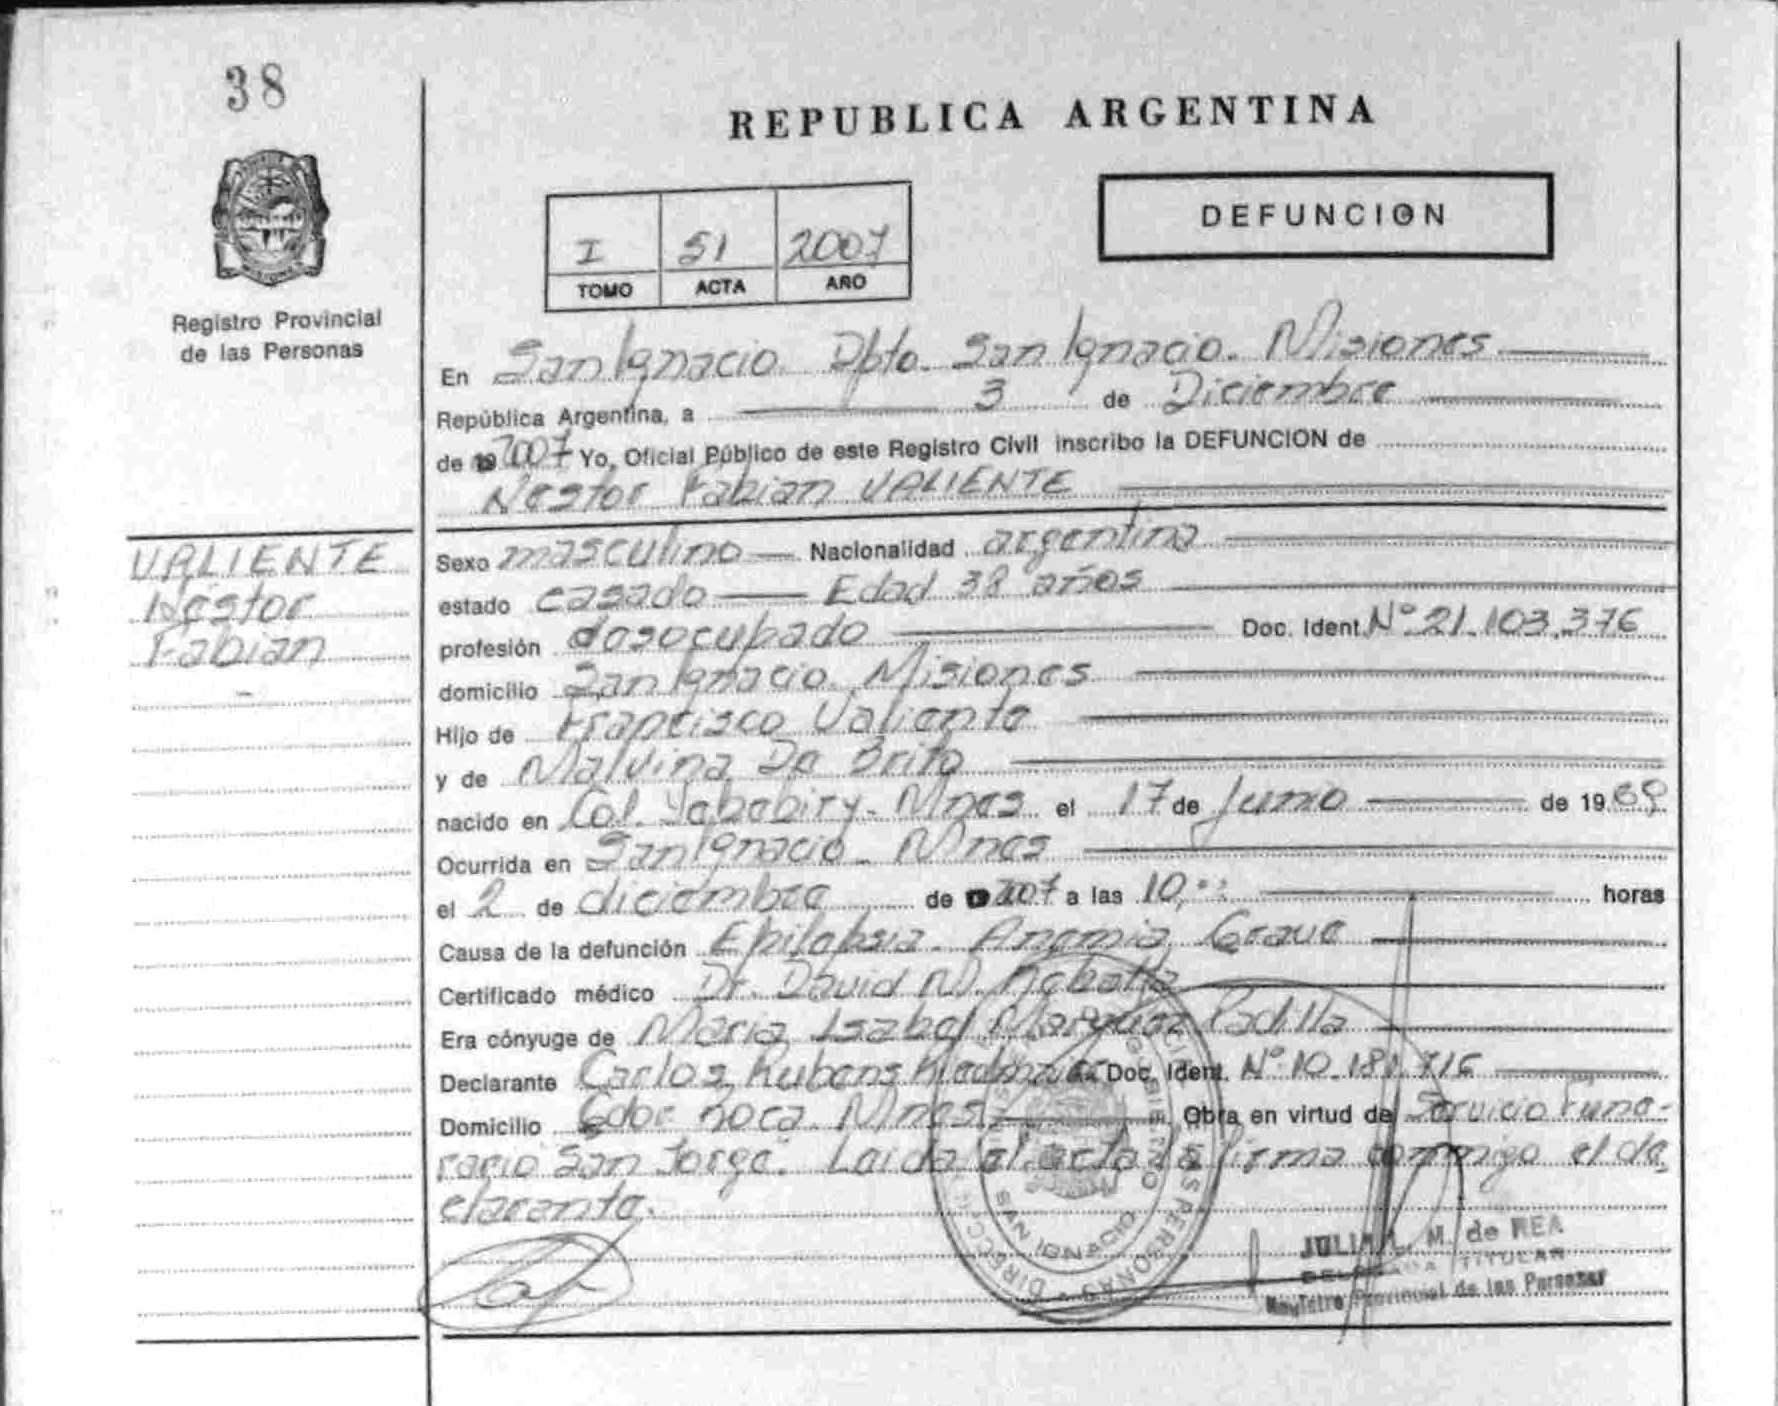 38
REPUBLICA ARGENTINA
DEFUNCION
I 51 2007
TOMO ACTA AÑO
Registro Provincial
de las Personas
En San Ignacio. Dpto. San Ignacio. Misiones
República Argentina, a 3 de Diciembre
de 2007 Yo, Oficial Público de este Registro Civil inscribo la DEFUNCION de
Nestor Fabian VALIENTE
VALIENTE
Nestor
Fabian
Sexo masculino Nacionalidad argentina
estado casado Edad 38 años
profesión desocupado Doc. Ident. Nº 21.103.376
domicilio San Ignacio Misiones
Hijo de Francisco Valiente
y de Malvina Da Brito
nacido en Col. Yabebiry - Mnes el 17 de Junio de 1969
Ocurrida en San Ignacio - Mnes
el 2 de diciembre de 2007 a las 10, horas
Causa de la defunción Epilepsia. Anemia Grave
Certificado médico Dr. David M.
Era cónyuge de Maria Isabel Marquez Padilla
Declarante Carlos Rubens Doc. Ident. Nº 10.181.716
Domicilio Gdor Roca. Mnes Obra en virtud de Servicio Fune-
rario San Jorge. Leida el acta la firma conmigo el de
clarante.
DIRECCION PERSONAS
SAN IGNACIO
JULIA M. de REA
DELEGADA TITULAR
Registro Provincial de las Personas